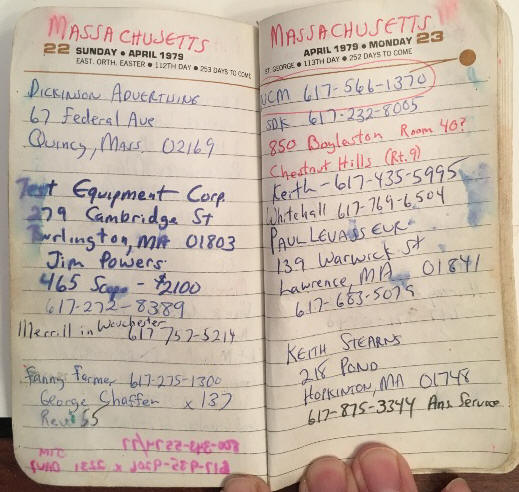 MASSACHUSETTS
22 SUNDAY • APRIL 1979
EAST. ORTH. EASTER • 112TH DAY • 253 DAYS TO COME
DICKINSON ADVERTISING
67 Federal Ave
Quincy, Mass. 02169
Test Equipment Corp.
279 Cambridge St
Burlington, MA 01803
Jim Powers
465 Scope - $2100
617-272-8389
Merrill in Worchester
617 757-5214
Fanny Farmer 617-275-1300
George Shaffer x 137
Rev. 55
MASSACHUSETTS
APRIL 1979 • MONDAY 23
ST. GEORGE • 113TH DAY • 252 DAYS TO COME
UCM 617-566-1370
SDK 617-232-8005
850 Boyleston Room 40?
Chestnut Hills (Rt. 9)
Keith - 617-435-5995
Whitehall 617-769-6504
PAUL LEVASSEUR
139 Warwick St
Lawrence, MA 01841
617-683-5079
KEITH STEARNS
218 POND
HOPKINTON, MA 01748
617-875-3344 Ans Service